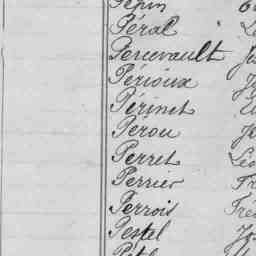 Pépin
Péral " Lé
Percevault Ju
Périoux
Périnet
Pérou
Perret Léo
Perrier Fr
Perrois Fré
Pestel Jo